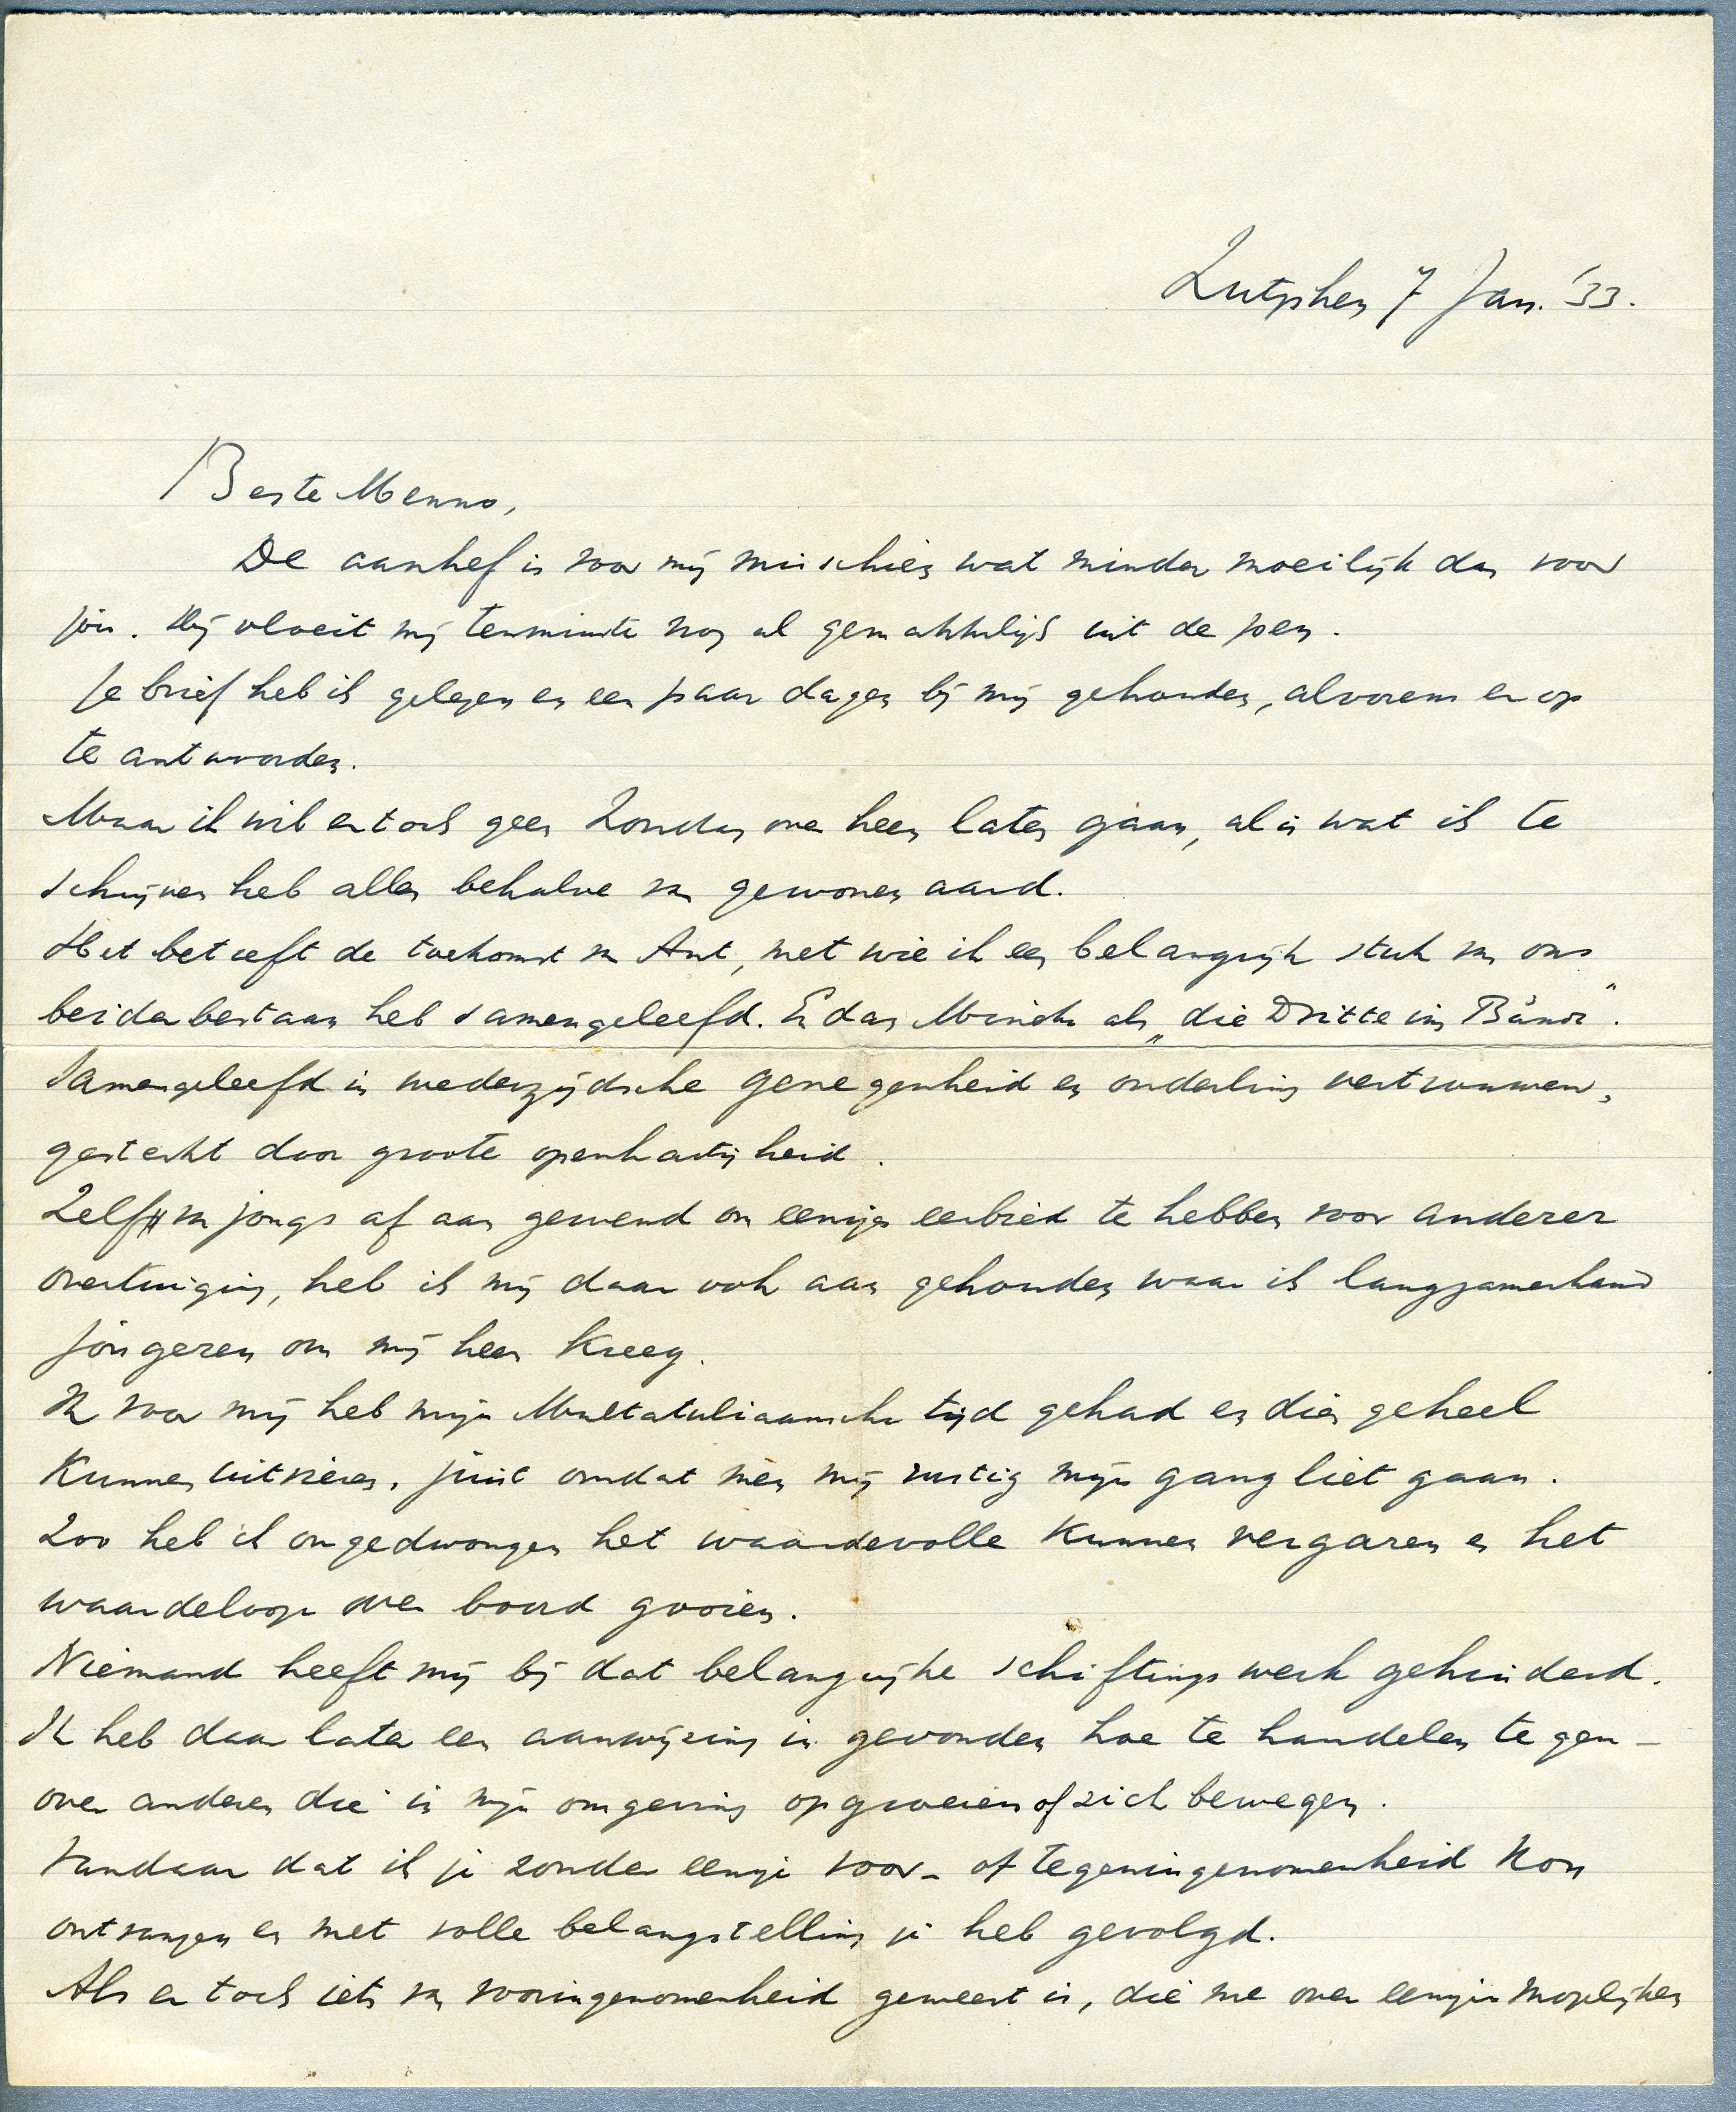 Zutphen 7 Jan. '33.
Beste Menno,
De aanhef is voor mij misschien wat minder moeilijk dan voor
jou. Hij vloeit mij tenminste nog al gemakkelijk uit de pen.
Je brief heb ik gelezen en een paar dagen bij mij gehouden, alvorens er op
te antwoorden.
Maar ik wil er toch geen Zondag over heen laten gaan, al is wat ik te
schrijven heb alles behalve van gewonen aard.
Het betreft de toekomst van Ant, met wie ik een belangrijk stuk van ons
beider bestaan heb samengeleefd. En dan Minsche als „die Dritte im Bunde".
Samengeleefd in wederzijdsche genegenheid en onderling vertrouwen,
gesterkt door groote openhartigheid.
Zelf van jongs af aan gewend om eenigen eerbied te hebben voor anderer
overtuiging, heb ik mij daar ook aan gehouden waar ik langzamerhand
jongeren om mij heen kreeg.
Ik voor mij heb mijn Multatuliaansche tijd gehad en dien geheel
kunnen uitvieren, juist omdat men mij rustig mijn gang liet gaan.
Zoo heb ik ongedwongen het waardevolle kunnen vergaren en het
waardelooze over boord gooien.
Niemand heeft mij bij dat belangrijke schiftingswerk gehinderd.
Ik heb daar later een aanwijzing in gevonden hoe te handelen tegen-
over anderen die in mijn omgeving opgroeien of zich bewegen.
Vandaar dat ik je zonder eenige voor- of tegeningenomenheid kon
ontvangen en met volle belangstelling je heb gevolgd.
Als er toch iets van vooringenomenheid geweest is, die me over eenige mogelijken